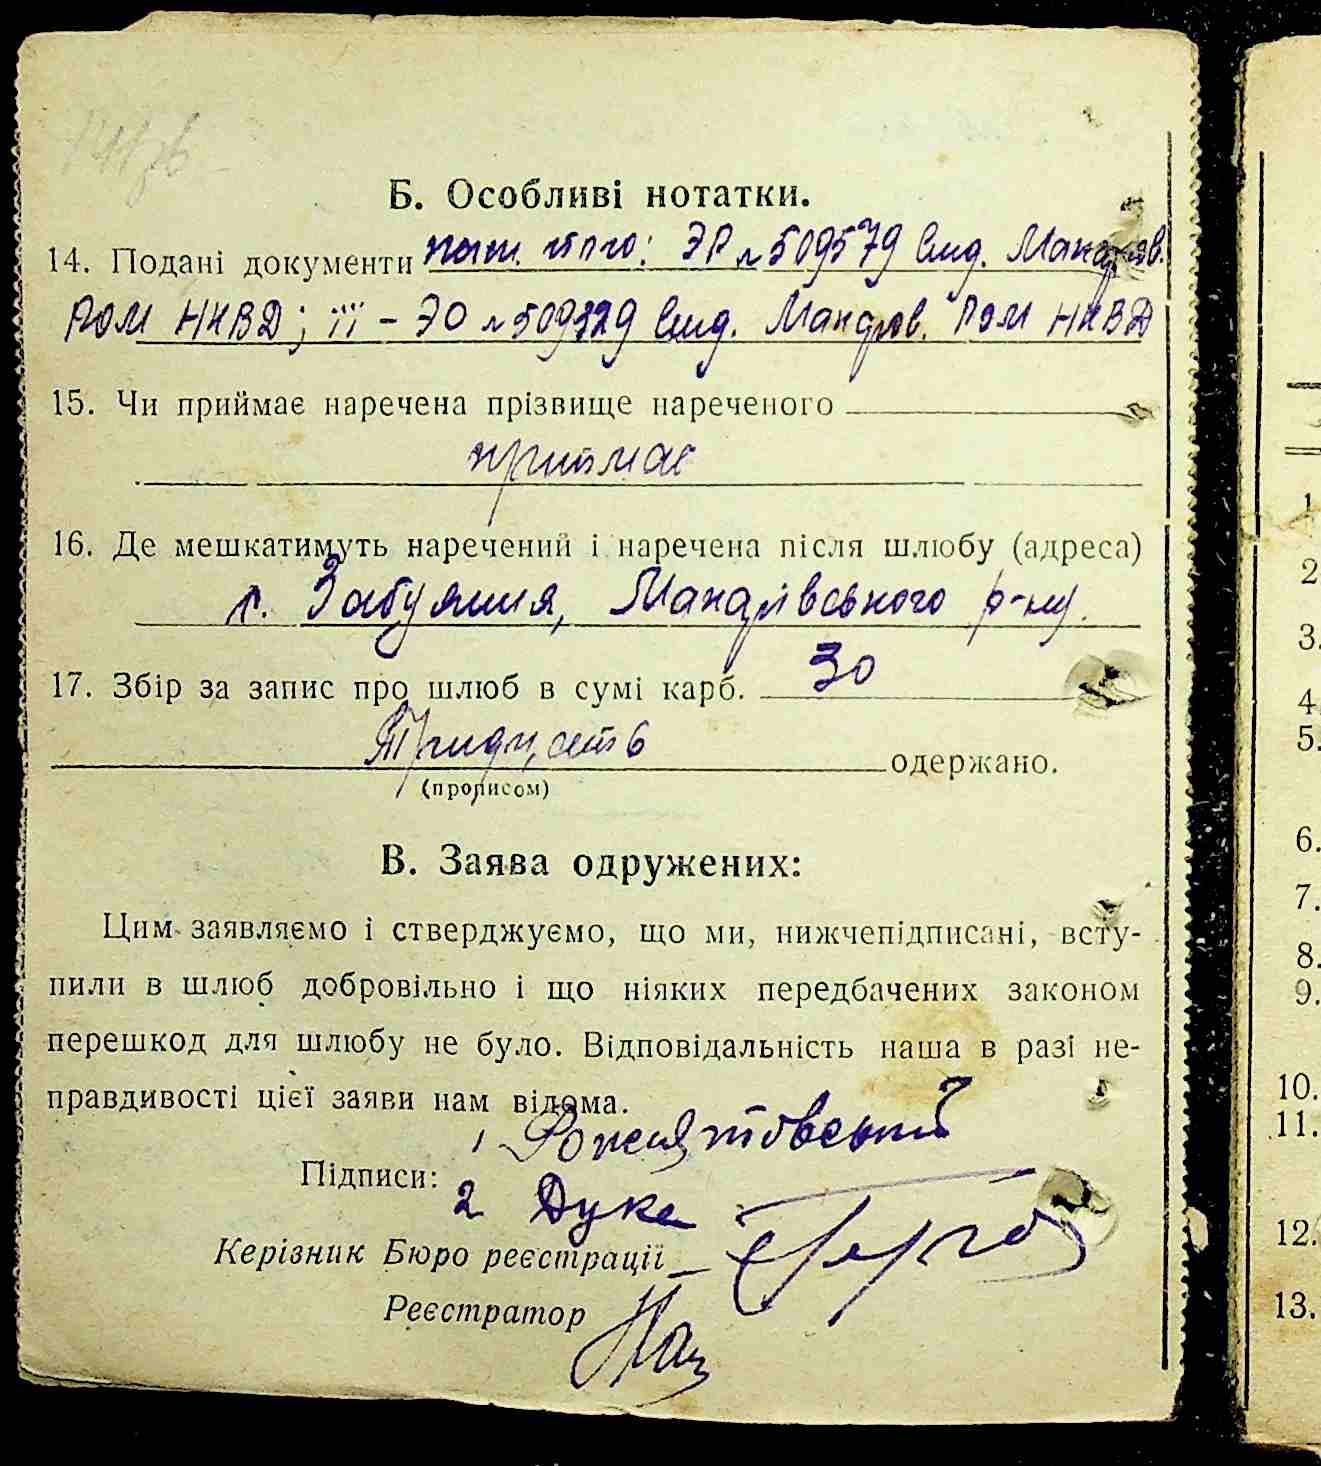 Б. Особливі нотатки.
14. Подані документи ЭР № 509579 Вид.
РОМ НКВД; — ЭО № Вид. РОМ НКВД
15. Чи приймає наречена прізвище нареченого
приймає
16. Де мешкатимуть наречений і наречена після шлюбу (адреса)
р-ну.
17. Збір за запис про шлюб в сумі карб. 30
Тридцять
одержано.
(прописом)
В. Заява одружених:
Цим заявляємо і стверджуємо, що ми, нижчепідписані, всту-
пили в шлюб добровільно і що ніяких передбачених законом
перешкод для шлюбу не було. Відповідальність наша в разі не-
правдивості цієї заяви нам відома.
1
Підписи:
2 Дуке
Керізник Бюро реєстрації
Реєстратор
1
2
3.
4.
5.
6.
7.
8.
9.
10.
11.
12.
13.